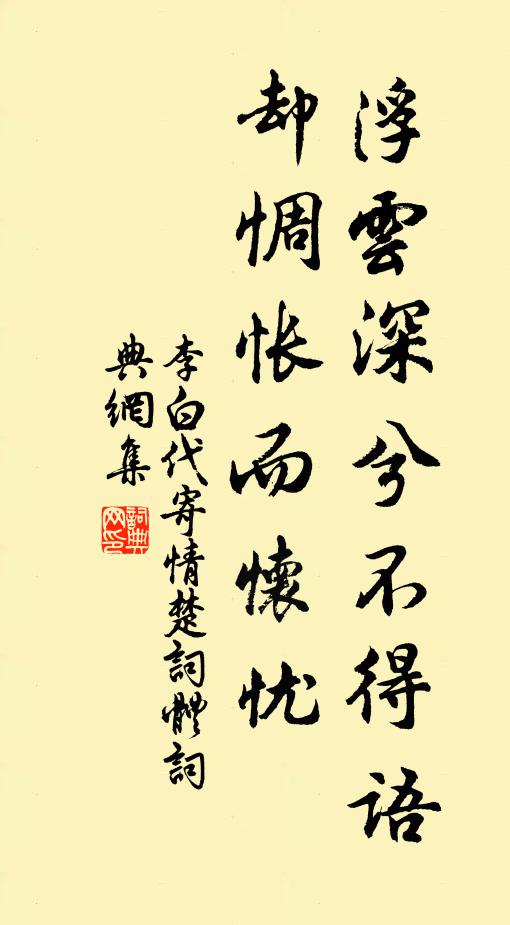 浮雲深兮不得語
却惆悵而懷忧
李白代寄情楚詞體詞
典網集
詞典
网印